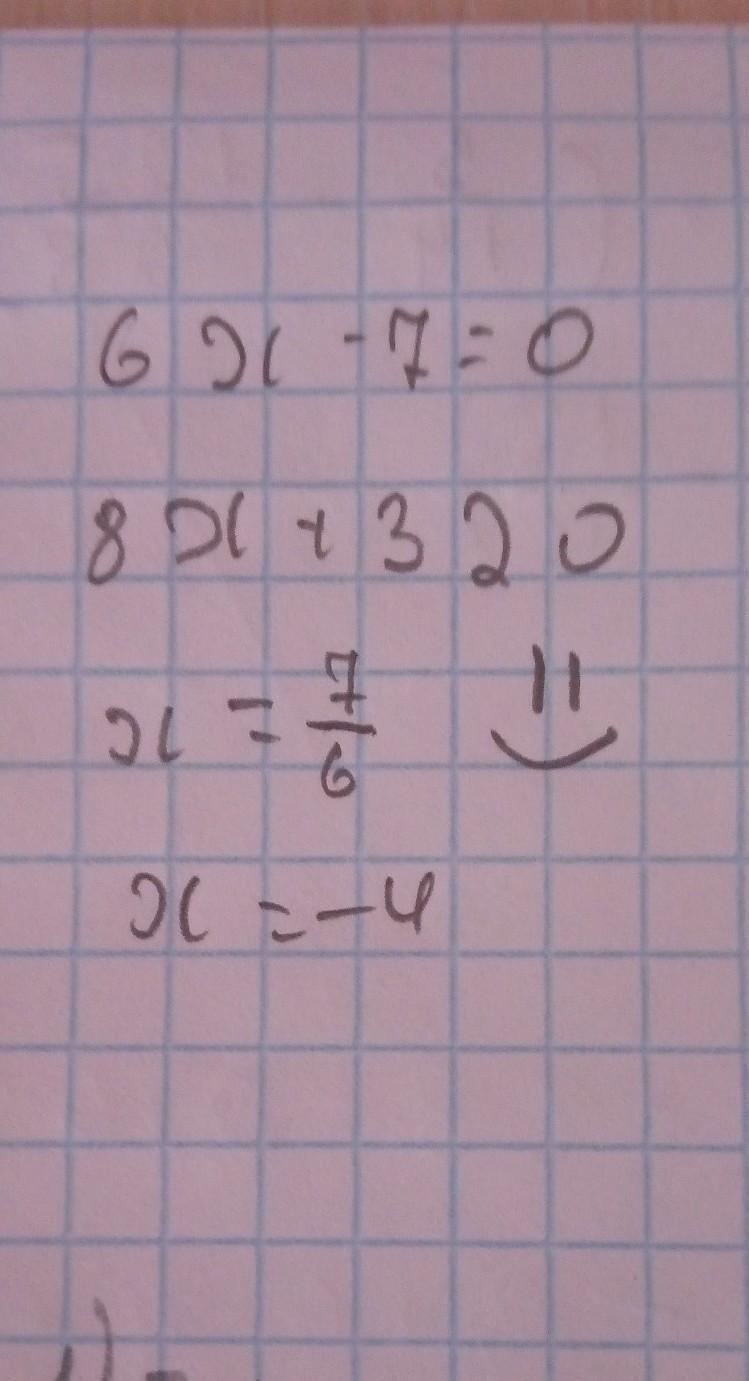 6x - 7 = 0
8x + 3 2 0
x = 7/6
x = -4